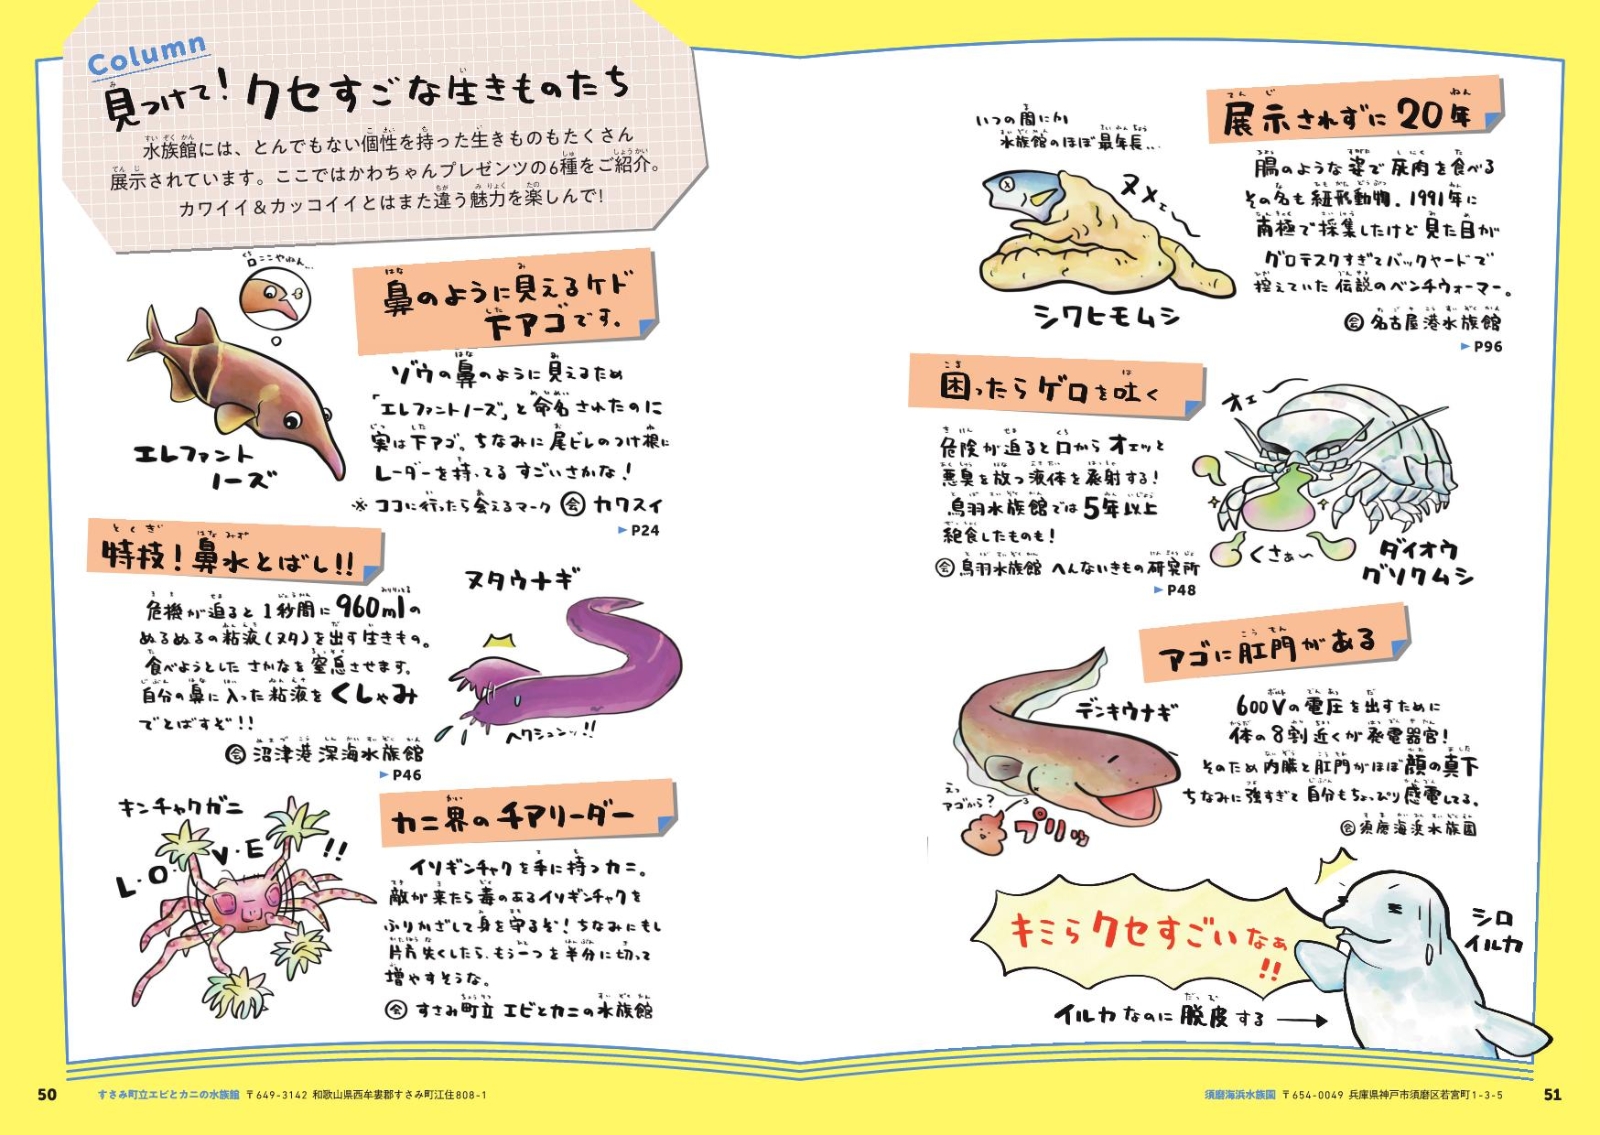 Column
見つけて！クセすごな生きものたち
水族館には、とんでもない個性を持った生きものもたくさん
展示されています。ここではかわちゃんプレゼンツの6種をご紹介。
カワイイ＆カッコイイとはまた違う魅力を楽しんで！
口ここやねん…
鼻のように見えるケド
下アゴです。
ゾウの鼻のように見えるため
「エレファントノーズ」と命名されたのに
実は下アゴ。ちなみに尾ビレのつけ根に
レーダーを持ってるすごいさかな！
エレファント
ノーズ
※ココに行ったら会えるマーク 会 カワスイ
▶P24
特技！鼻水とばし!!
危機が迫ると1秒間に960mlの
ぬるぬるの粘液（ヌタ）を出す生きもの。
食べようとしたさかなを窒息させます。
自分の鼻に入った粘液をくしゃみ
でとばすぞ!!
会 沼津港深海水族館
▶P46
ヌタウナギ
ヘクシュンッ!!
キンチャクガニ
L・O・V・E!!
カニ界のチアリーダー
イソギンチャクを手に持つカニ。
敵が来たら毒のあるイソギンチャクを
ふりかざして身を守るぞ！ちなみにもし
片方失くしたら、もう一つを半分に切って
増やすそうな。
会 すさみ町立エビとカニの水族館
50
すさみ町立エビとカニの水族館 〒649-3142 和歌山県西牟婁郡すさみ町江住808-1
いつの間にか
水族館のほぼ最年長…
ヌメェ〜
シワヒモムシ
展示されずに20年
腸のような姿で死肉を食べる
その名も紐形動物。1991年に
南極で採集したけど見た目が
グロテスクすぎてバックヤードで
控えていた伝説のベンチウォーマー。
会 名古屋港水族館
▶P96
困ったらゲロを吐く
危険が迫ると口からオエッと
悪臭を放つ液体を発射する！
鳥羽水族館では5年以上
絶食したものも！
会 鳥羽水族館 へんないきもの研究所
▶P48
オエー
くさぁ〜
ダイオウ
グソクムシ
アゴに肛門がある
600Vの電圧を出すために
体の8割近くが発電器官！
そのため内臓と肛門がほぼ顔の真下
ちなみに強すぎて自分もちょっぴり感電してる。
会 須磨海浜水族園
デンキウナギ
えっ
アゴから？
プリッ
キミらクセすごいなぁ
!!
シロ
イルカ
イルカなのに脱皮する→
須磨海浜水族園 〒654-0049 兵庫県神戸市須磨区若宮町1-3-5
51